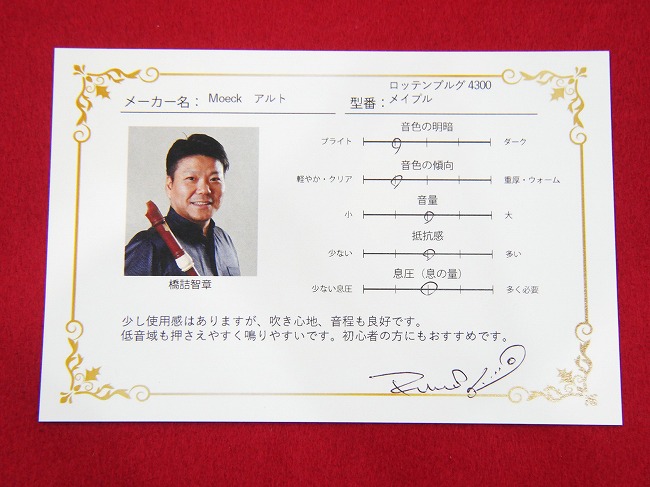 ロッテンブルグ 4300
メーカー名： Moeck アルト 型番： メイプル
音色の明暗
ブライト ダーク
音色の傾向
軽やか・クリア 重厚・ウォーム
音量
小 大
抵抗感
少ない 多い
息圧（息の量）
少ない息圧 多く必要
橋詰智章
少し使用感はありますが、吹き心地、音程も良好です。
低音域も押さえやすく鳴りやすいです。初心者の方にもおすすめです。